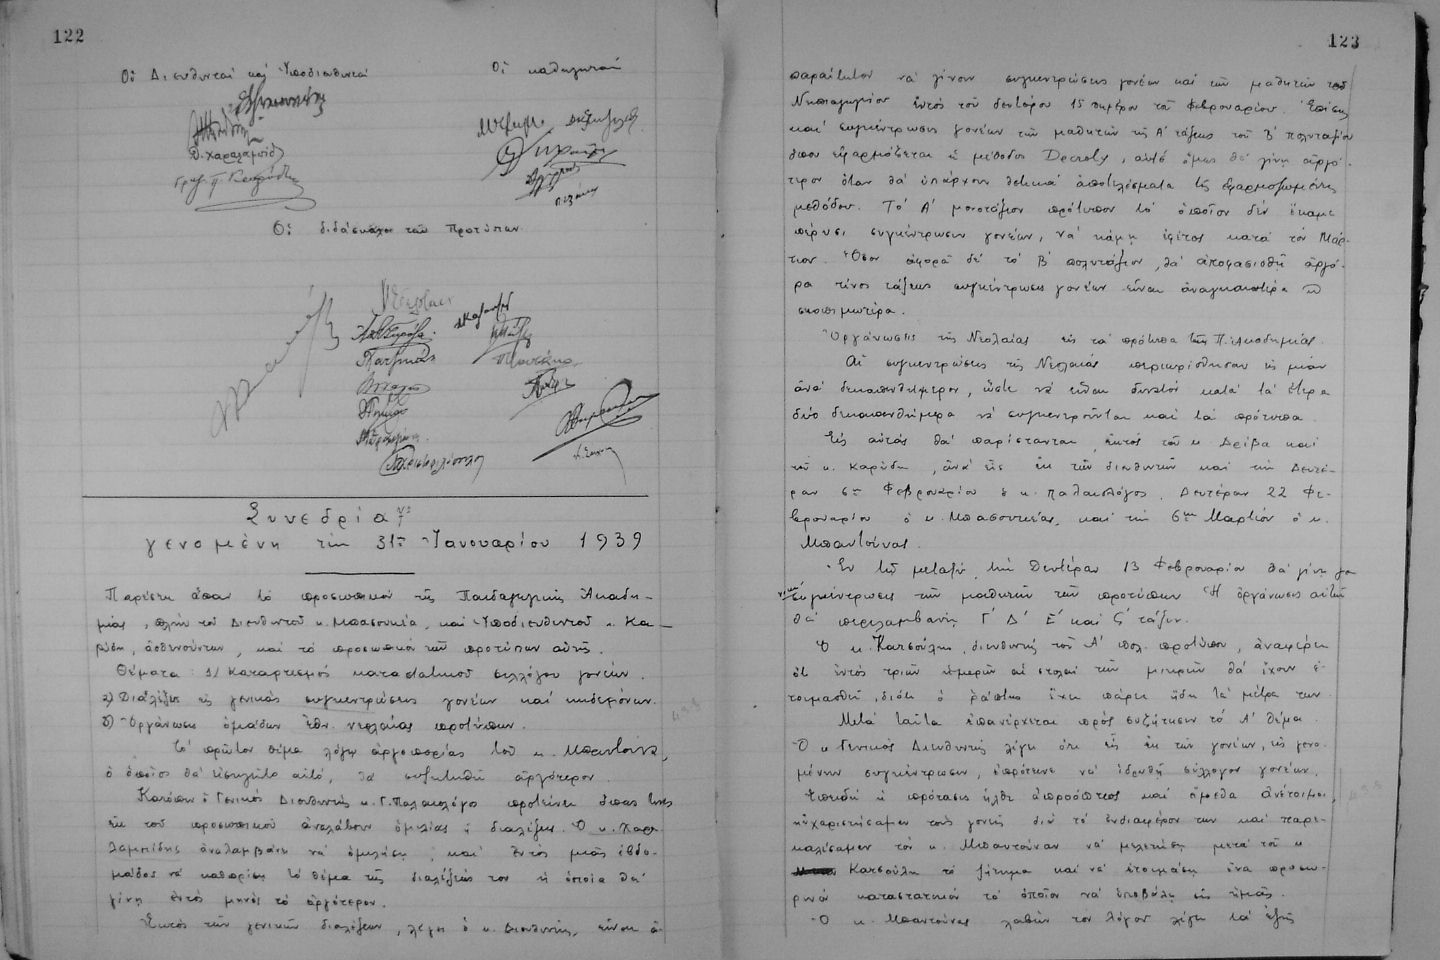 122
Οἱ Διευθυνταί καί Ὑποδιευθυνταί
Οἱ καθηγηταί
Θ. Χαραλαμπίδης
Οἱ διδάσκαλοι τῶν Προτύπων
Συνεδρία 7η
γενομένη τήν 31ην Ἰανουαρίου 1939
Παρέστη ἅπαν τό προσωπικόν τῆς Παιδαγωγικῆς Ἀκαδη-
μίας, πλήν τοῦ Διευθυντοῦ κ. Μπασουκέα, καί Ὑποδιευθυντοῦ κ. Κα-
ρύδη, ἀσθενούντων, καί τό προσωπικόν τῶν προτύπων αὐτῆς.
Θέματα: 1/ Καταρτισμός καταστατικοῦ συλλόγου γονέων.
2) Διαλέξεις εἰς γενικάς συγκεντρώσεις γονέων καί κηδεμόνων.
3) Ὀργάνωσις ὁμάδων ἐθν. νεολαίας προτύπων.
Τό πρῶτον θέμα λόγῳ ἀργοπορίας τοῦ κ. Μπαντούνα,
ὁ ὁποῖος θά εἰσηγεῖτο αὐτό, θά συζητηθῇ ἀργότερον.
Κατόπιν ὁ Γενικός Διευθυντής κ. Γ. Παλαιολόγος προτείνει ὅπως τινές
ἐκ τοῦ προσωπικοῦ ἀναλάβουν ὁμιλίας ἤ διαλέξεις. Ὁ κ. Χαρα-
λαμπίδης ἀναλαμβάνει νά ὁμιλήσῃ, καί ἐντός μιᾶς ἑβδο-
μάδος νά καθορίσῃ τό θέμα τῆς διαλέξεώς του ἡ ὁποία θά
γίνῃ ἐντός μηνός τό ἀργότερον.
Ἐκτός τῶν γενικῶν διαλέξεων, λέγει ὁ κ. Διευθυντής, εἶναι ἀ-
123
παραίτητον νά γίνουν συγκεντρώσεις γονέων καί τῶν μαθητῶν τοῦ
Νηπιαγωγείου ἐντός τοῦ δευτέρου 15νημέρου τοῦ Φεβρουαρίου. Ἐπίσης
καί συγκέντρωσις γονέων τῶν μαθητῶν τῆς Α' τάξεως τοῦ Β' πολυταξίου
ὅπου ἐφαρμόζεται ἡ μέθοδος Decroly, αὐτό ὅμως θά γίνῃ ἀργό-
τερον ὅταν θά ὑπάρχουν θετικά ἀποτελέσματα τῆς ἐφαρμοζομένης
μεθόδου. Τό Α' μονοτάξιον πρότυπον τό ὁποῖον δέν ἔκαμε
πέρυσι συγκέντρωσιν γονέων, νά κάμῃ ἐφέτος κατά τόν Μάρ-
τιον. Ὅσον ἀφορᾶ δέ τό Β' πολυτάξιον, θά ἀποφασισθῇ ἀργό-
ρα τίνος τάξεως συγκέντρωσις γονέων εἶναι ἀναγκαιοτέρα ἤ
σκοπιμωτέρα.
Ὀργάνωσις τῆς Νεολαίας εἰς τά πρότυπα τῆς Π. Ἀκαδημίας.
Αἱ συγκεντρώσεις τῆς Νεολαίας περιωρίσθησαν εἰς μίαν
ἀνά δεκαπενθήμερον, ὥστε νά εἶναι δυνατόν κατά τά ἕτερα
δύο δεκαπενθήμερα νά συγκεντροῦνται καί τά πρότυπα.
Εἰς αὐτάς θά παρίστανται, ἐκτός τοῦ κ. Δρίβα καί
τοῦ κ. Καρύδη, ἀνά εἷς ἐκ τῶν διευθυντῶν καί τήν Δευτέ-
ραν 6ην Φεβρουαρίου ὁ κ. Παλαιολόγος, Δευτέραν 22 Φε-
βρουαρίου ὁ κ. Μπασουκέας, καί τήν 6ην Μαρτίου ὁ κ.
Μπαντούνας.
Ἐν τῷ μεταξύ, τήν Δευτέραν 13 Φεβρουαρίου θά γίνῃ γε
νική συγκέντρωσις τῶν μαθητῶν τῶν προτύπων. Ἡ ὀργάνωσις αὕτη
θά περιλαμβάνῃ Γ' Δ' Ε' καί ς' τάξιν.
Ὁ κ. Κατσούλης, διευθυντής τοῦ Α' πολ. προτύπου, ἀναφέρει
ὅτι ἐντός τριῶν ἡμερῶν αἱ στολαί τῶν μικρῶν θά ἔχουν ἑ-
τοιμασθῆ, διότι ὁ ράπτης ἔχει πάρει ἤδη τά μέτρα των.
Μετά ταῦτα ἐπανέρχεται πρός συζήτησιν τό Α' θέμα.
Ὁ κ. Γενικός Διευθυντής λέγει ὅτι εἷς ἐκ τῶν γονέων, εἰς γενο-
μένην συγκέντρωσιν, ἐπρότεινε νά ἱδρυθῇ σύλλογος γονέων.
Ἐπειδή ἡ πρότασις ἦλθε ἀπροόπτως καί ἤμεθα ἀνέτοιμοι,
ηὐχαριστήσαμεν τούς γονεῖς διά τό ἐνδιαφέρον των καί παρε-
καλέσαμεν τόν κ. Μπαντούναν νά μελετήσῃ μετά τοῦ κ.
Κατσούλη τό ζήτημα καί νά ἑτοιμάσῃ ἕνα προσω-
ρινό καταστατικόν τό ὁποῖον νά ὑποβάλῃ εἰς ἡμᾶς.
Ὁ κ. Μπαντούνας λαβών τόν λόγον λέγει τά ἑξῆς